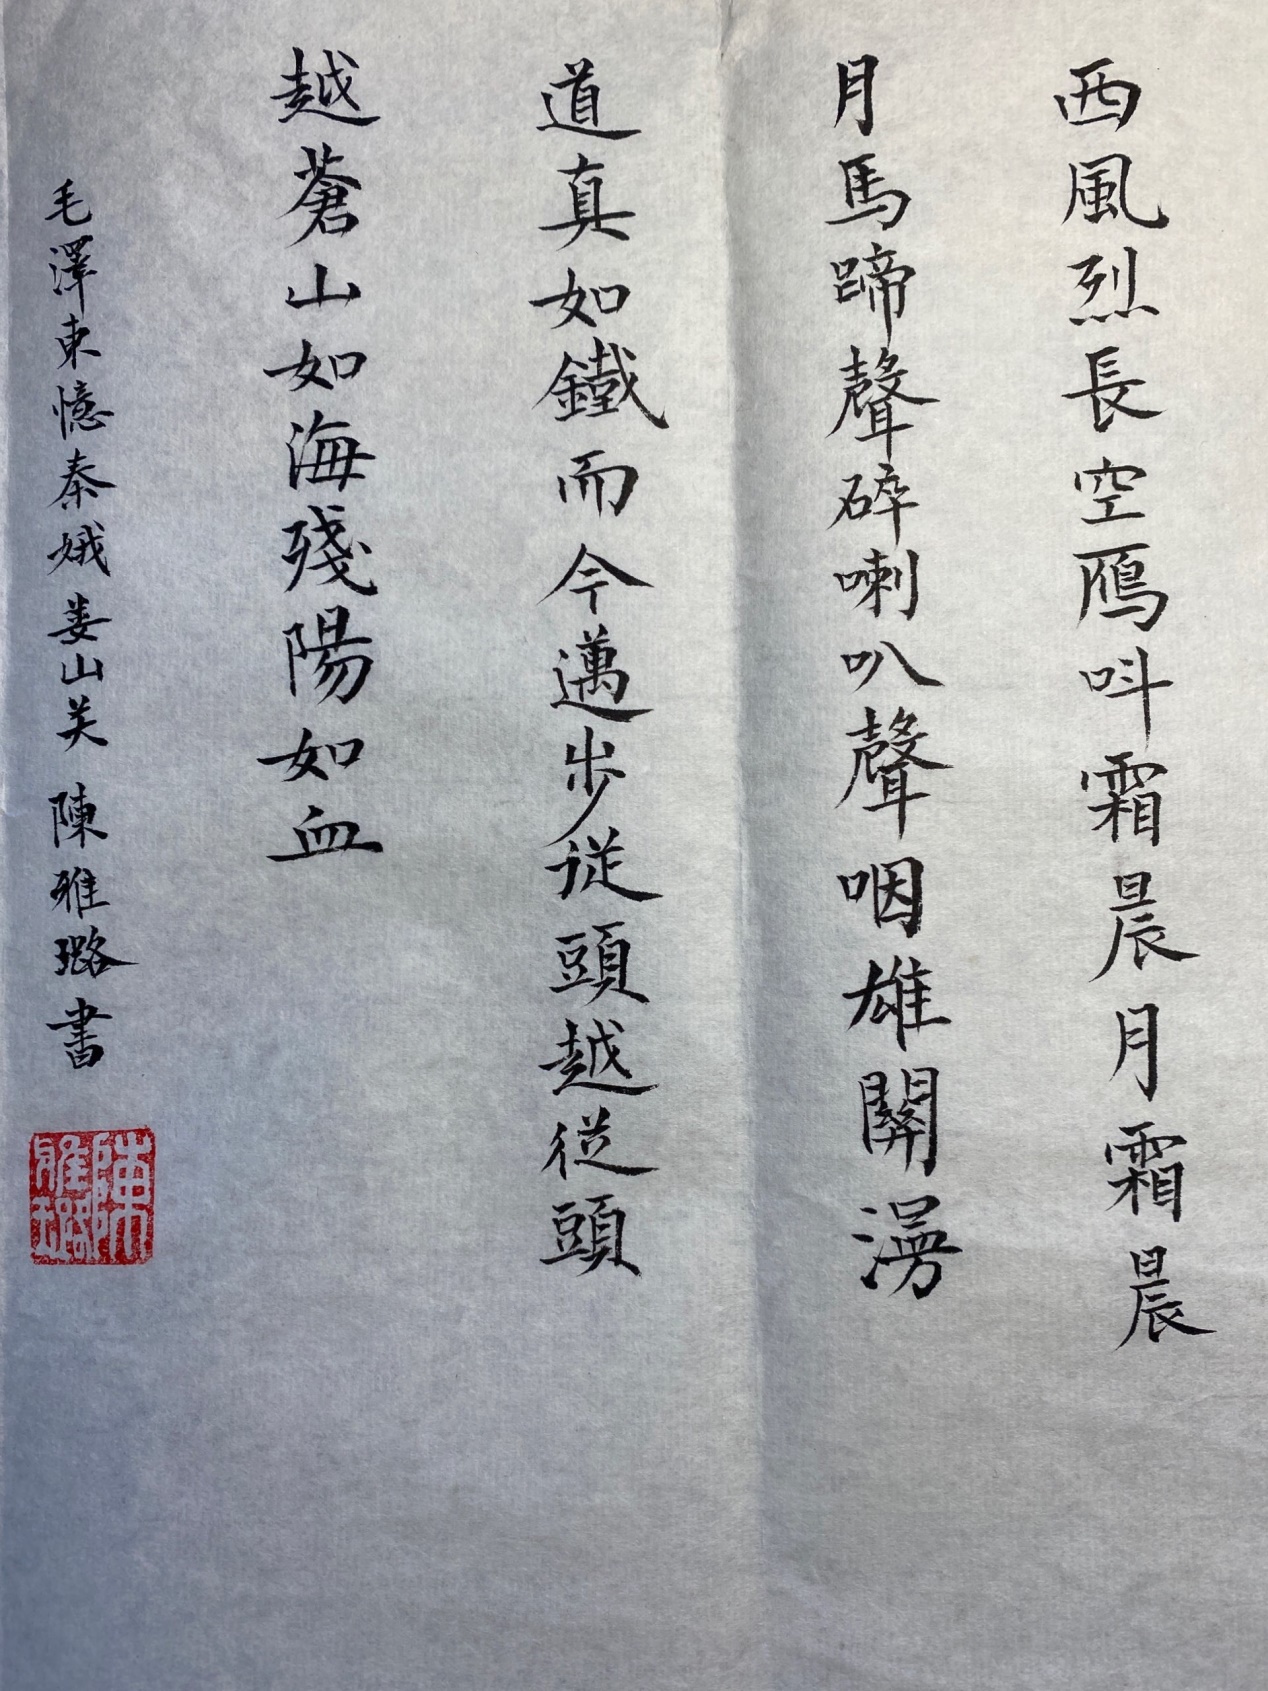 西風烈長空鴈呌霜晨月霜晨
月馬蹄聲碎喇叭聲咽雄關漫
道真如鐵而今邁步從頭越從頭
越蒼山如海殘陽如血
毛澤東憶秦娥娄山关 陳雅璐書
陳雅璐